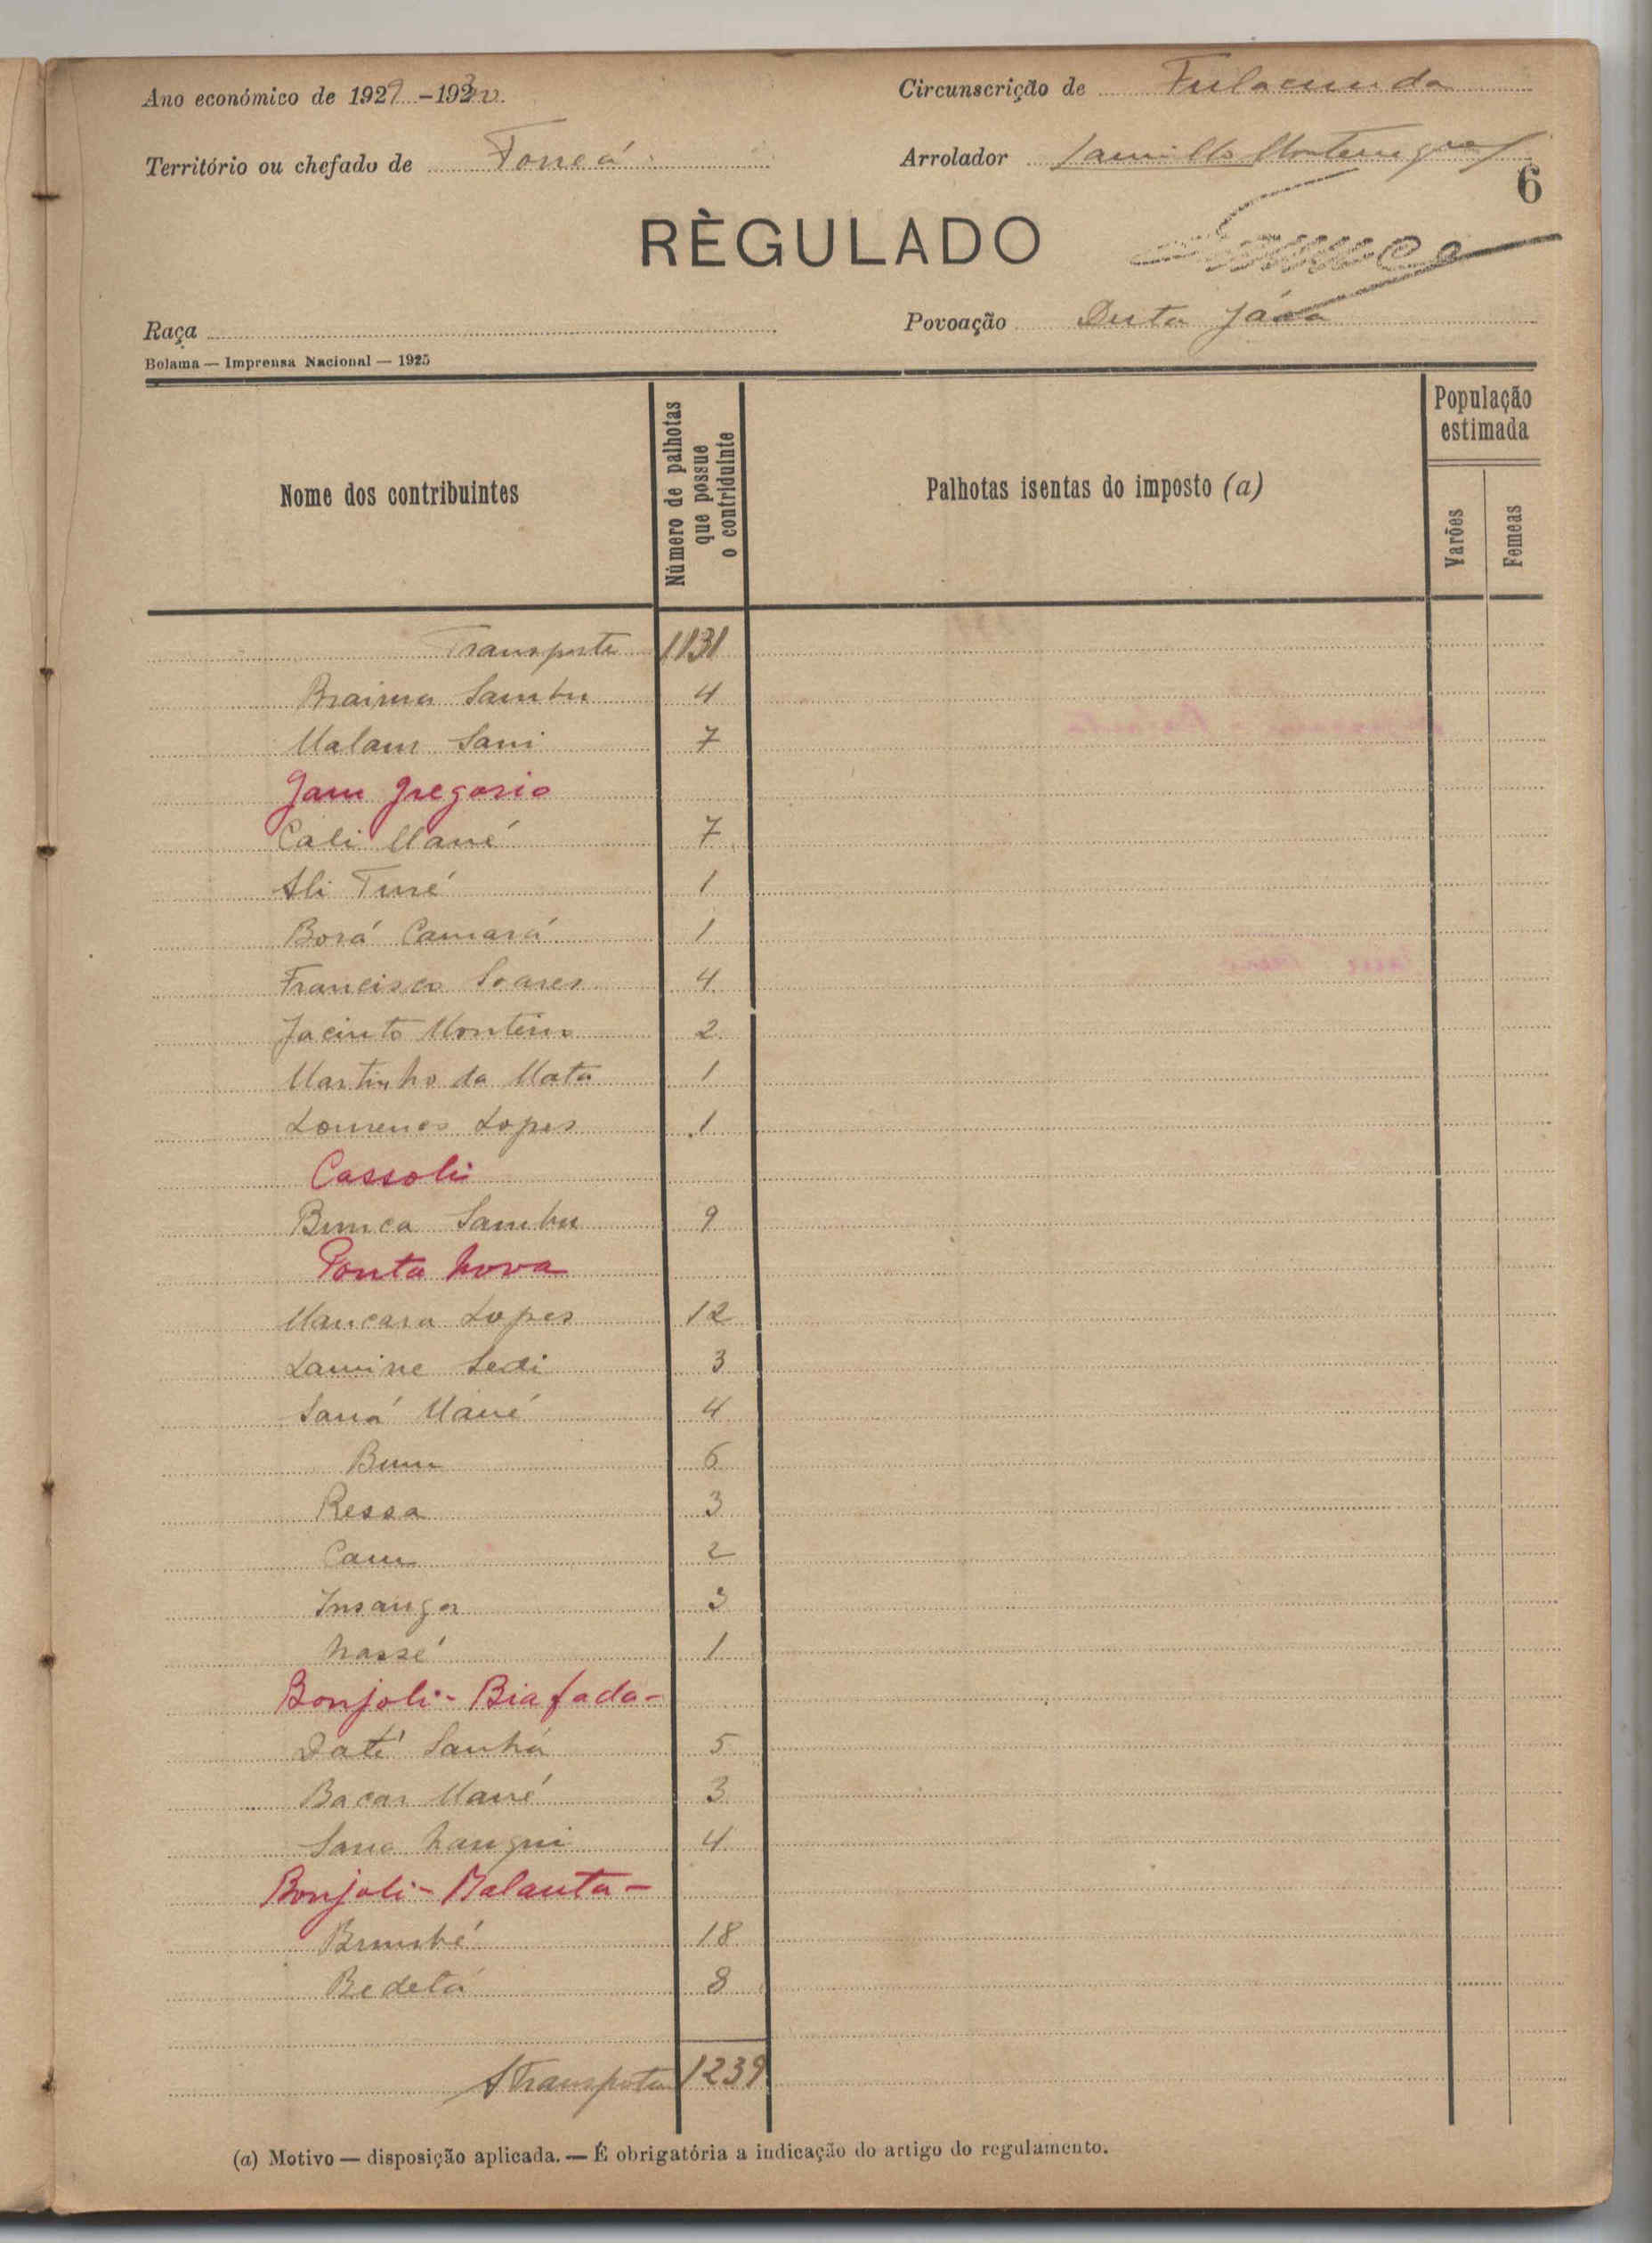 Ano económico de 1929-1930
Circunscrição de Fulacunda
Território ou chefado de Foneá
Arrolador
6
RÈGULADO
Raça
Povoação
Bolama — Imprensa Nacional — 1925
Nome dos contribuintes
Número de palhotas que possue o contriduinte
Palhotas isentas do imposto (a)
População estimada
Varões
Femeas
Transporte 1131
Braima Sambu 4
Malam Sani 7
Gam Gregorio
Cali Mané 7
Ali Turé 1
Borá Camará 1
Francisco Soares 4
Jacinto Monteiro 2
Martinho da Mata 1
Lourenço Lopes 1
Cassoli
Bunca Sambu 9
Ponta Nova
Mancara Lopes 12
Lamine Sedi 3
Saná Mané 4
Bum 6
Ressa 3
Cam 2
Insanga 3
Nassé 1
Bonjoli - Biafada -
Daté Sanhá 5
Bacar Mané 3
Sana Nangui 4
Bonjoli - Balanta -
Brumbé 18
Bedetá 8
A Transportar 1239
(a) Motivo — disposição aplicada. — É obrigatória a indicação do artigo do regulamento.